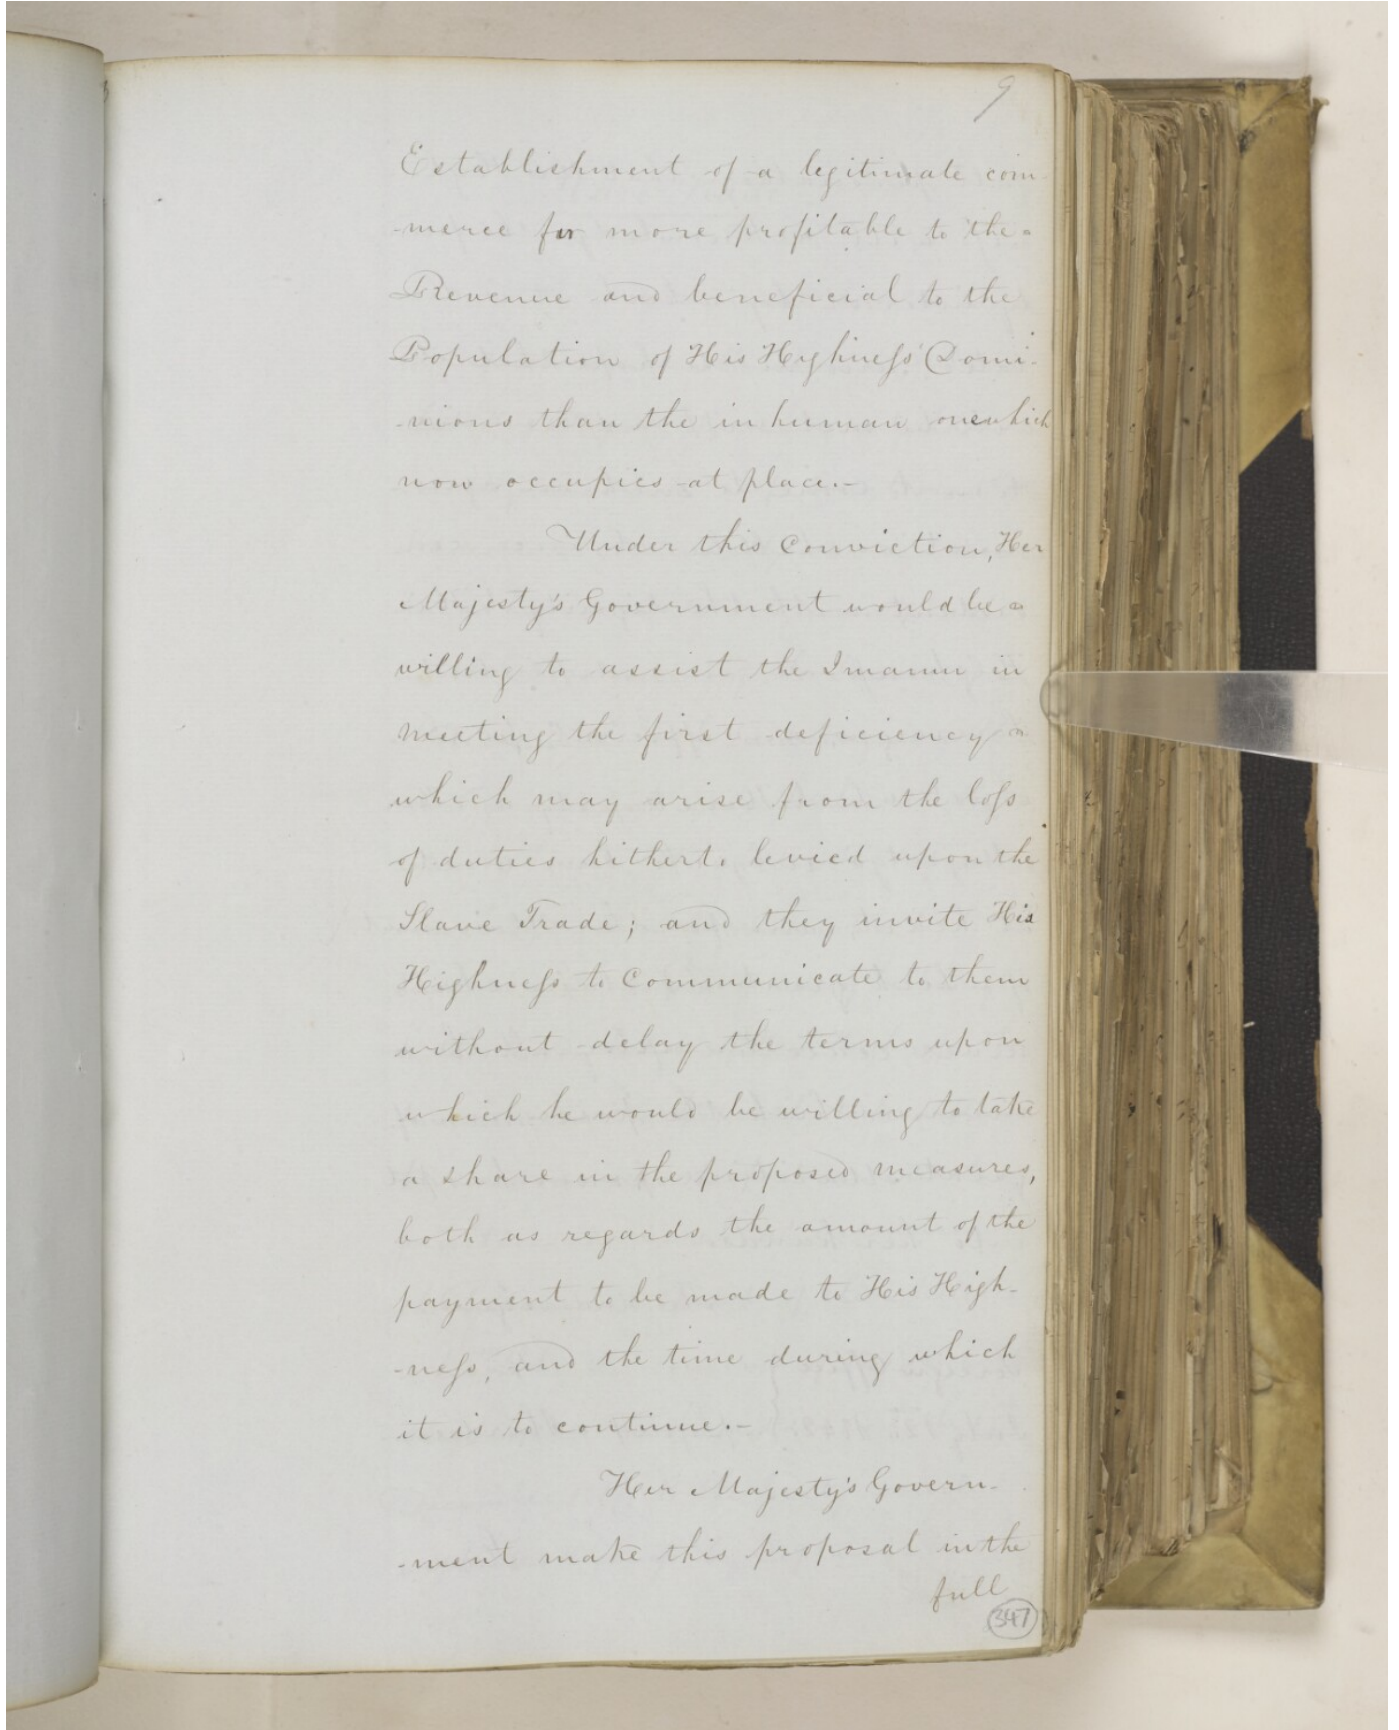 9
Establishment of a legitimate com
-merce far more profitable to the
Revenue and beneficial to the
Population of His Highness' Domi-
-nions than the inhuman one which
now occupies at place.-
Under this Conviction, Her
Majesty's Government would be
willing to assist the Imaum in
meeting the first deficiency
which may arise from the loss
of duties hitherto levied upon the
Slave Trade; and they invite His
Highness to Communicate to them
without delay the terms upon
which he would be willing to take
a share in the proposed measures,
both as regards the amount of the
payment to be made to His High-
-ness, and the time during which
it is to continue.-
Her Majesty's Govern-
-ment make this proposal in the
full
347